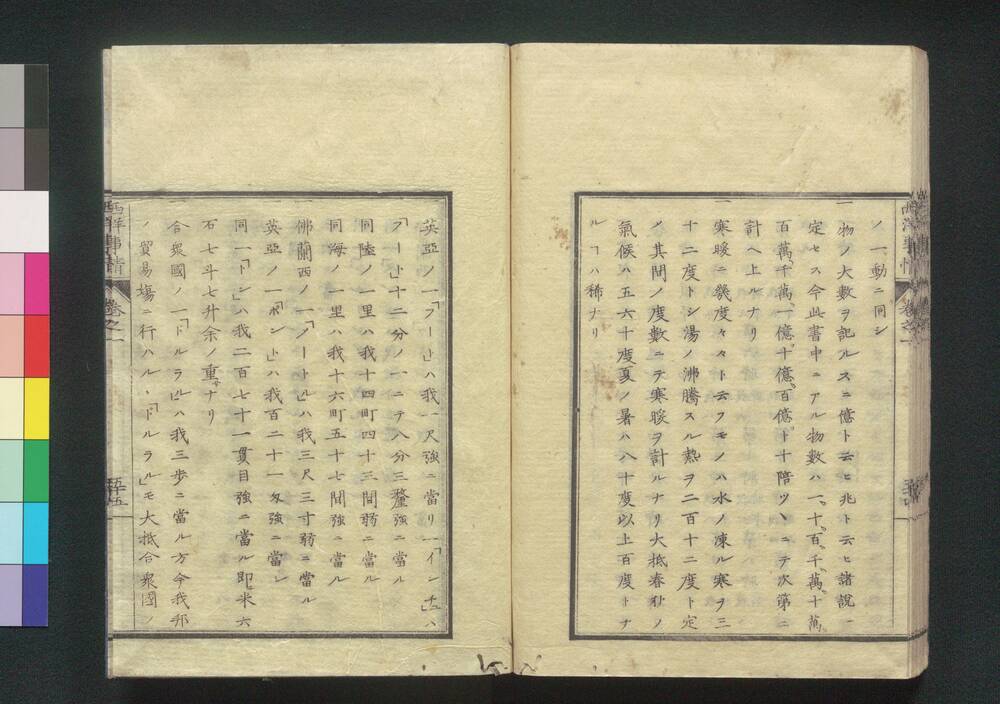 ノ一動ニ同シ
一物ノ大數ヲ記ルスニ億ト云ヒ兆ト云ヒ諸説一
定セス今此書中ニアル物數ハ一、十、百、千、萬、十萬、
百萬、千萬、一億、十億、百億、ト十陪ツヽニテ次第ニ
計ヘ上ルナリ
一寒暖ニ幾度々々ト云フモノハ水ノ凍ル寒ヲ三
十二度トシ湯ノ沸騰スル熱ヲ二百十二度ト定
メ其間ノ度數ニテ寒暖ヲ計ルナリ大抵春秋ノ
氣候ハ五六十度夏ノ暑ハ八十度以上百度トナ
ルヿハ稀ナリ
一英亞ノ一「フート」ハ我一尺強ニ當リ一「インチユ」ハ
「フート」十二分ノ一ニテ八分三釐強ニ當ル
同陸ノ一里ハ我十四町四十三間弱ニ當ル
同海ノ一里ハ我十六町五十七間強ニ當ル
佛蘭西ノ一「メートル」ハ我三尺三寸弱ニ當ル
英亞ノ一「ポント」ハ我百二十一匁強ニ當レ
同一「トン」ハ我二百七十一貫目強ニ當ル即米六
石七斗七升余ノ重サナリ
一合衆國ノ一「ドルラル」ハ我三歩ニ當ル方今我邦
ノ貿易塲ニ行ハルヽ「ドルラル」モ大抵合衆國ノ
西洋事情 卷之一 五十五